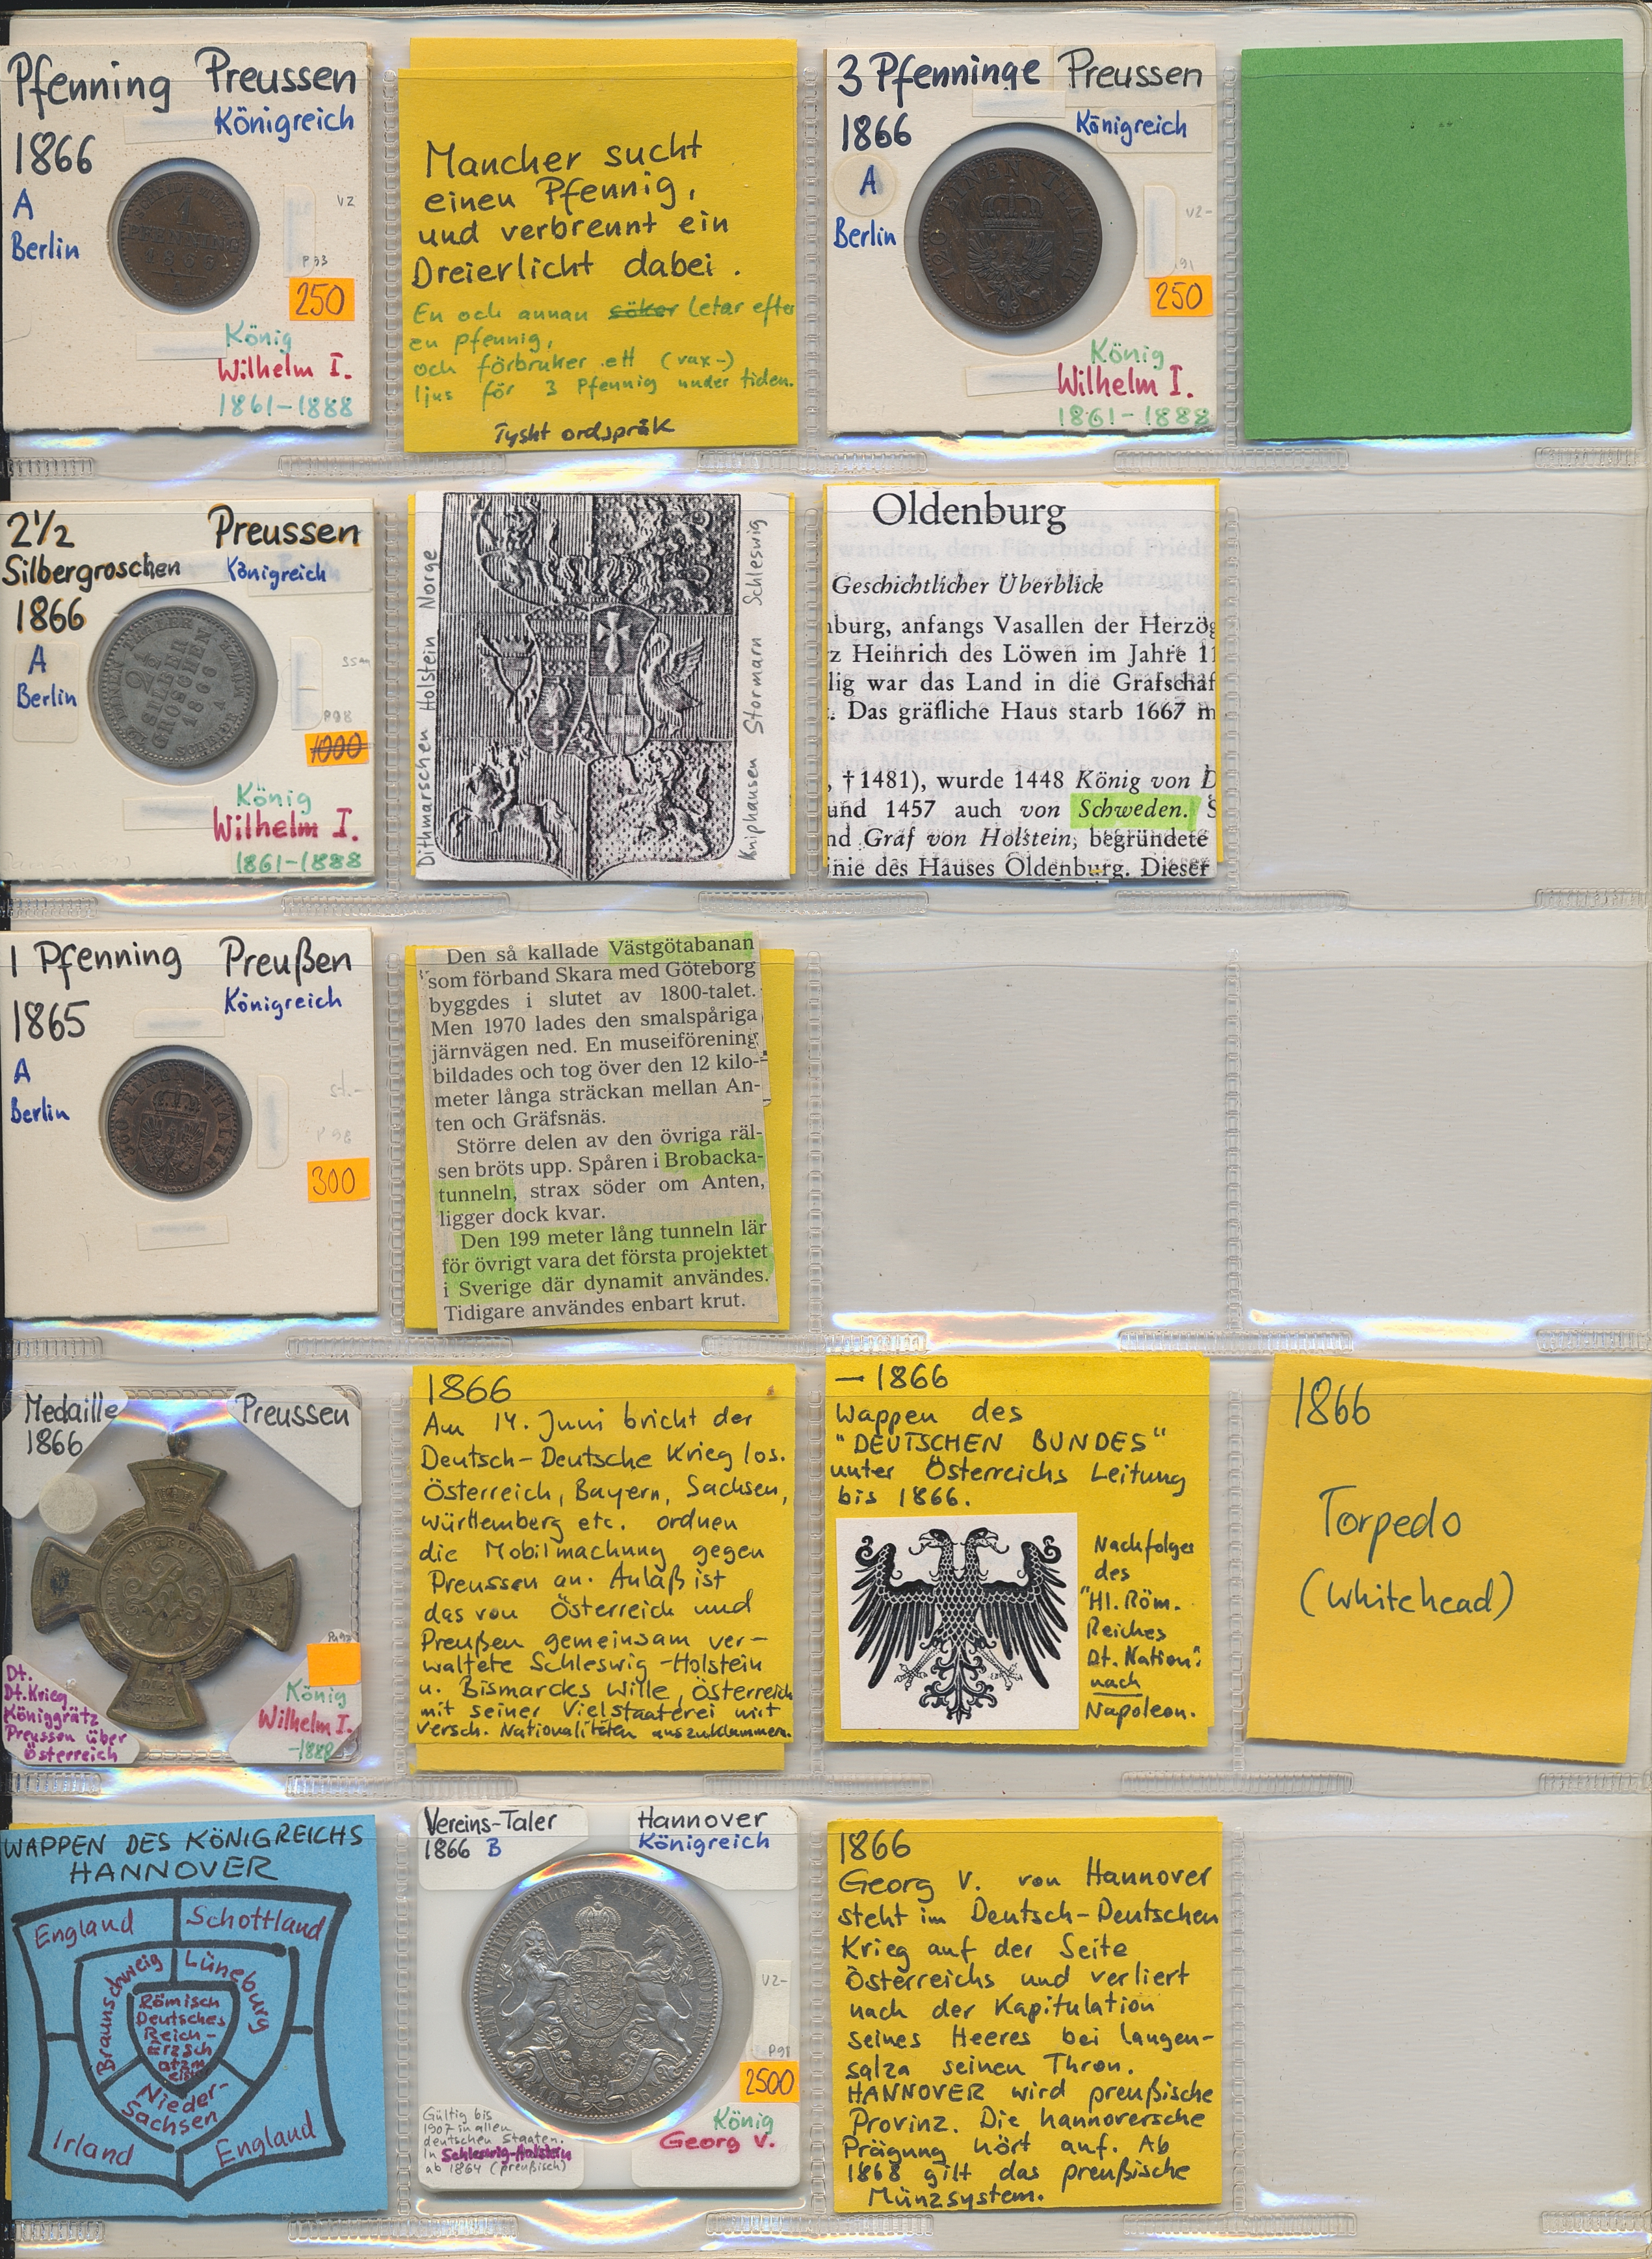 Pfenning Preussen
Königreich
1866
A
Berlin
VZ
250
König
Wilhelm I.
1861-1888
1
PFENNING
1866
A
Mancher sucht
einen Pfennig,
und verbrennt ein
Dreierlicht dabei.
En och annan söker letar efter
en pfennig,
och förbruker ett (vax-)
ljus för 3 Pfennig under tiden.
Tyskt ordspråk
3 Pfenninge Preussen
Königreich
1866
A
Berlin
VZ-
250
König
Wilhelm I.
1861-1888
120 EINEN THALER
2½ Preussen
Silbergroschen Königreich
1866
A
Berlin
P98
1000
König
Wilhelm I.
1861-1888
12 EINEN THALER
2½
SILBER
GROSCHEN
1866
A
SCHEIDE MÜNZE
Dithmarschen Holstein Norge
Kniphausen Stormarn Schleswig
Oldenburg
Geschichtlicher Überblick
nburg, anfangs Vasallen der Herzög
z Heinrich des Löwen im Jahre 11
lig war das Land in die Grafschaf
. Das gräfliche Haus starb 1667 m
, †1481), wurde 1448 König von D
und 1457 auch von Schweden. S
nd Graf von Holstein; begründete
inie des Hauses Oldenburg. Dieser
1 Pfenning Preußen
Königreich
1865
A
Berlin
st.-
P98
300
360 EINEN THALER
Den så kallade Västgötabanan
som förband Skara med Göteborg
byggdes i slutet av 1800-talet.
Men 1970 lades den smalspåriga
järnvägen ned. En museiförening
bildades och tog över den 12 kilo-
meter långa sträckan mellan An-
ten och Gräfsnäs.
Större delen av den övriga räl-
sen bröts upp. Spåren i Brobacka-
tunneln, strax söder om Anten,
ligger dock kvar.
Den 199 meter lång tunneln lär
för övrigt vara det första projektet
i Sverige där dynamit användes.
Tidigare användes enbart krut.
Medaille Preussen
1866
Dt.
Dt. Krieg
Königgrätz
Preussen über
Österreich
König
Wilhelm I.
-1888
1866
Am 14. Juni bricht der
Deutsch-Deutsche Krieg los.
Österreich, Bayern, Sachsen,
Württemberg etc. ordnen
die Mobilmachung gegen
Preussen an. Anlaß ist
das von Österreich und
Preußen gemeinsam ver-
waltete Schleswig-Holstein
u. Bismarcks Wille, Österreich
mit seiner Vielstaaterei mit
versch. Nationalitäten auszuklammern.
- 1866
Wappen des
"DEUTSCHEN BUNDES"
unter Österreichs Leitung
bis 1866.
Nachfolger
des
"Hl. Röm.
Reiches
Dt. Nation"
nach
Napoleon.
1866
Torpedo
(Whitehead)
WAPPEN DES KÖNIGREICHS
HANNOVER
England Schottland
Braunschweig Lüneburg
Römisch
Deutsches
Reich-
Erzsch
atzm
Nieder-
Sachsen
Irland England
Vereins-Taler Hannover
1866 B Königreich
VZ-
P98
2500
König
Georg V.
Gültig bis
1907 in allen
deutschen Staaten.
In Schleswig-Holstein
ab 1864 (preußisch)
EIN VEREINSTHALER XXX EIN PFUND FEIN
1866
1866
Georg V. von Hannover
steht im Deutsch-Deutschen
Krieg auf der Seite
Österreichs und verliert
nach der Kapitulation
seines Heeres bei Langen-
salza seinen Thron.
HANNOVER wird preußische
Provinz. Die hannoversche
Prägung hört auf. Ab
1868 gilt das preußische
Münzsystem.